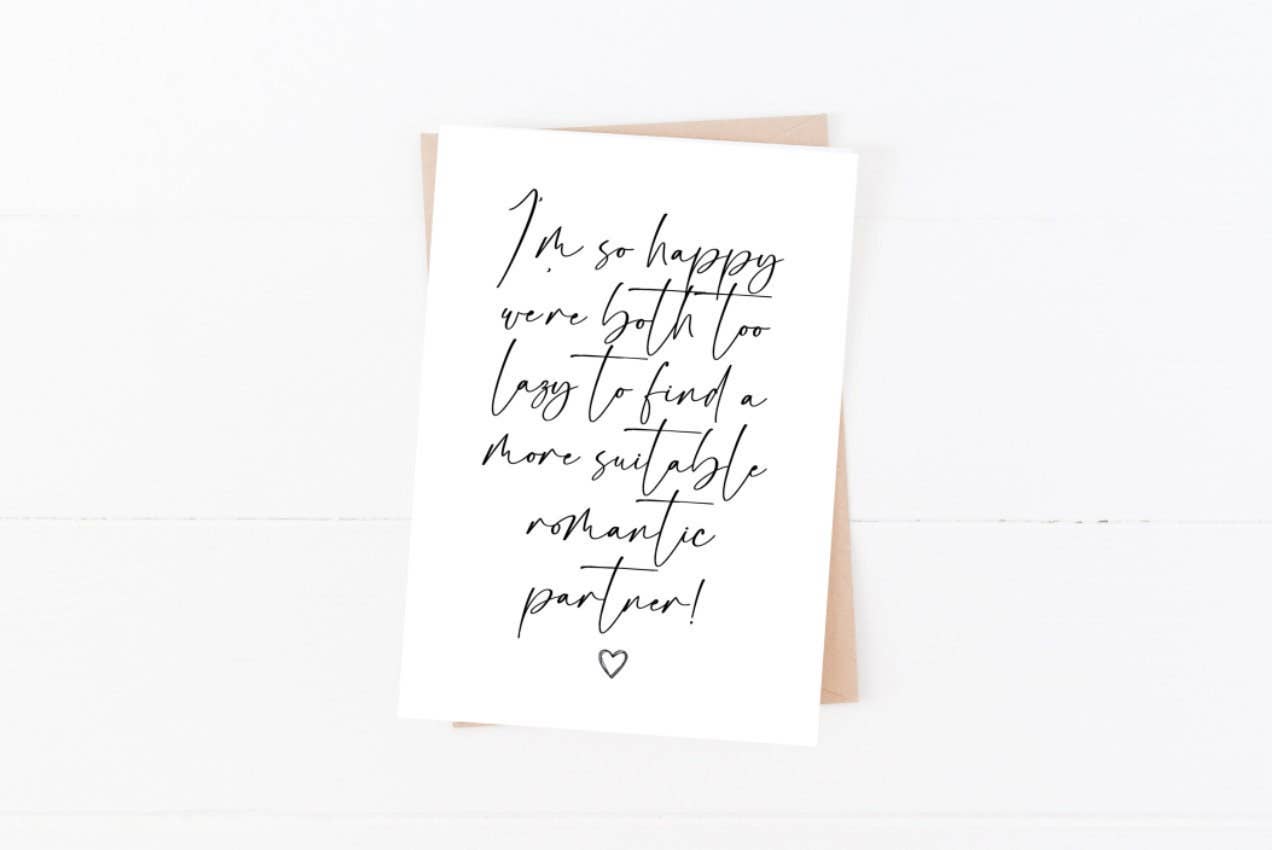 I'm so happy
we're both too
lazy to find a
more suitable
romantic
partner!